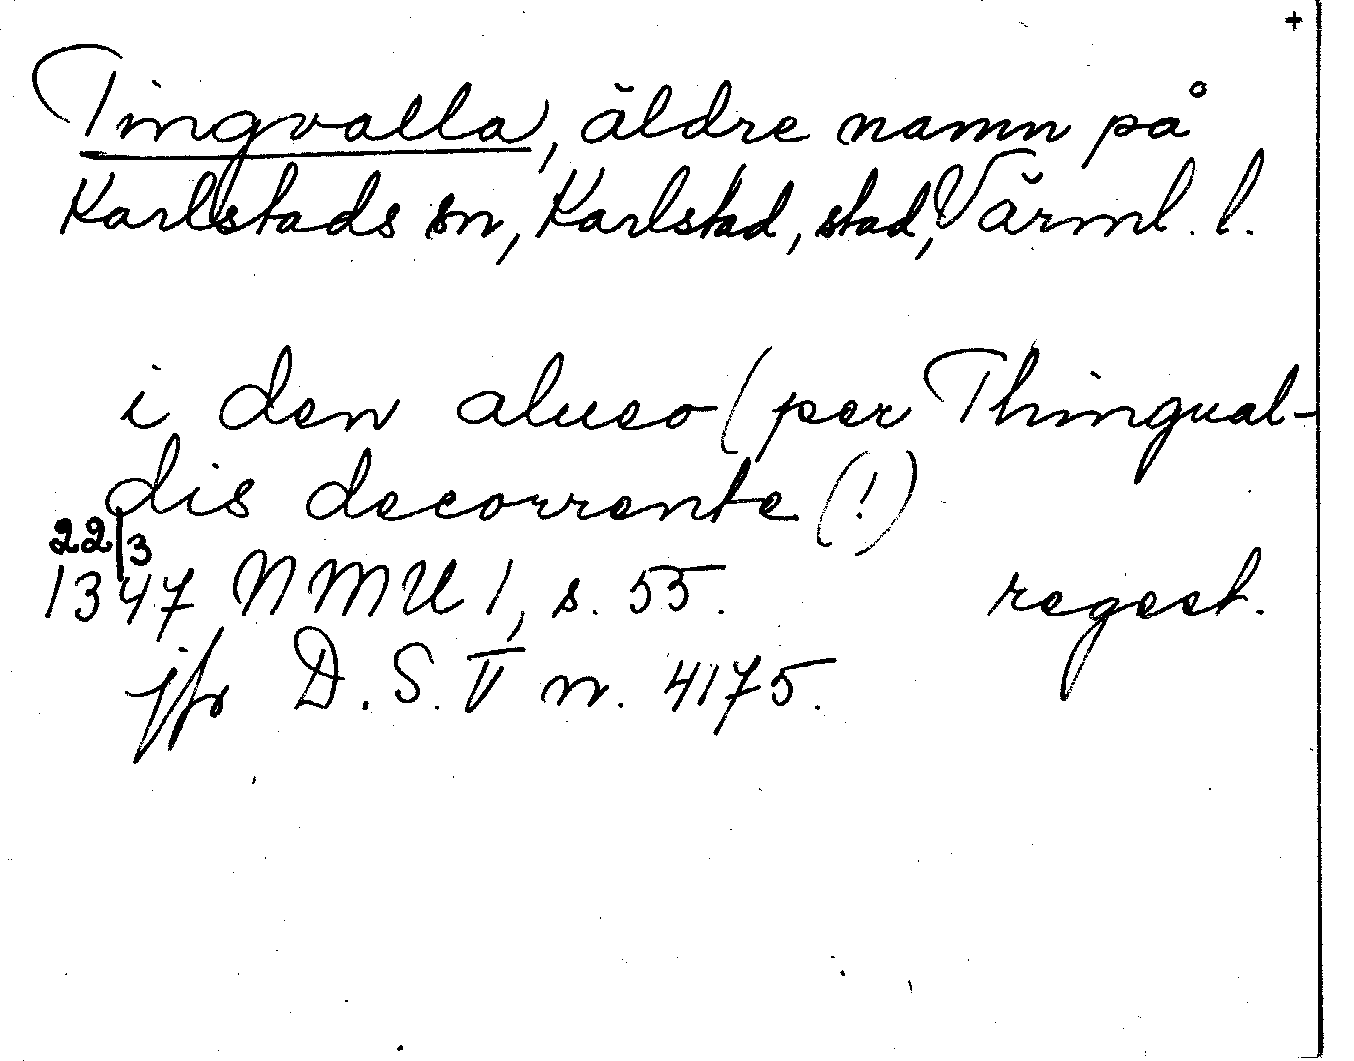 +
Tingvalla, äldre namn på
Karlstads sn, Karlstad, stad, Värml. l.
i den alueo (per Thingual-
dis decorrente (!)
22/3
1347 NMU 1, s. 55. regest.
jfr D. S. V n. 4175.